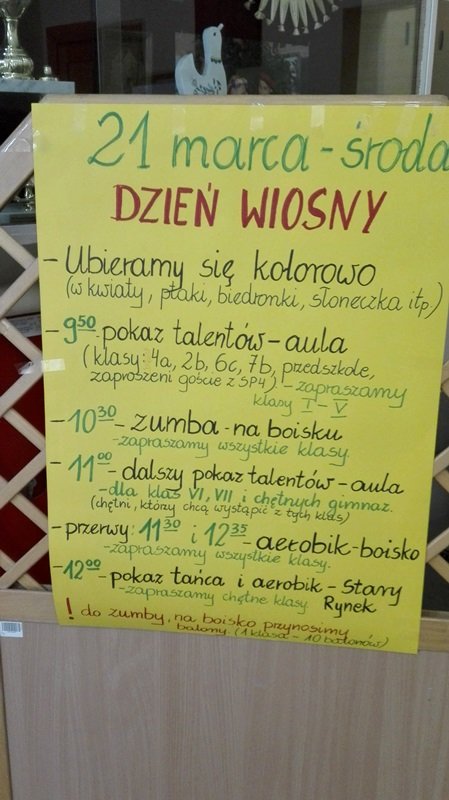 21 marca - środa
DZIEŃ WIOSNY
- Ubieramy się kolorowo
(w kwiaty, ptaki, biedronki, słoneczka itp)
- 9⁵⁰ pokaz talentów - aula
(klasy: 4a, 2b, 6c, 7b, przedszkole,
zaproszeni goście z SP4) - zapraszamy
klasy I - V
- 10³⁰ - zumba - na boisku
- zapraszamy wszystkie klasy.
- 11⁰⁰ - dalszy pokaz talentów - aula
- dla klas VI, VII i chętnych gimnaz.
(chętni, którzy chcą wystąpić z tych klas)
- przerwy: 11³⁰ i 12³⁵ - aerobik - boisko
- zapraszamy wszystkie klasy.
- 12⁰⁰ - pokaz tańca i aerobik - Stary
- zapraszamy chętne klasy Rynek
! do zumby, na boisko przynosimy
balony. (1 klasa - 10 balonów)